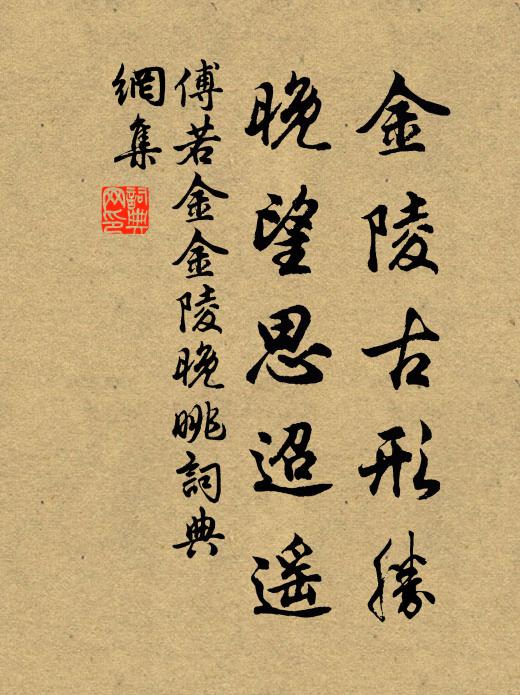 金陵古形勝
晚望思迢遥
傅若金金陵晚眺詞典
網集
詞典
网印